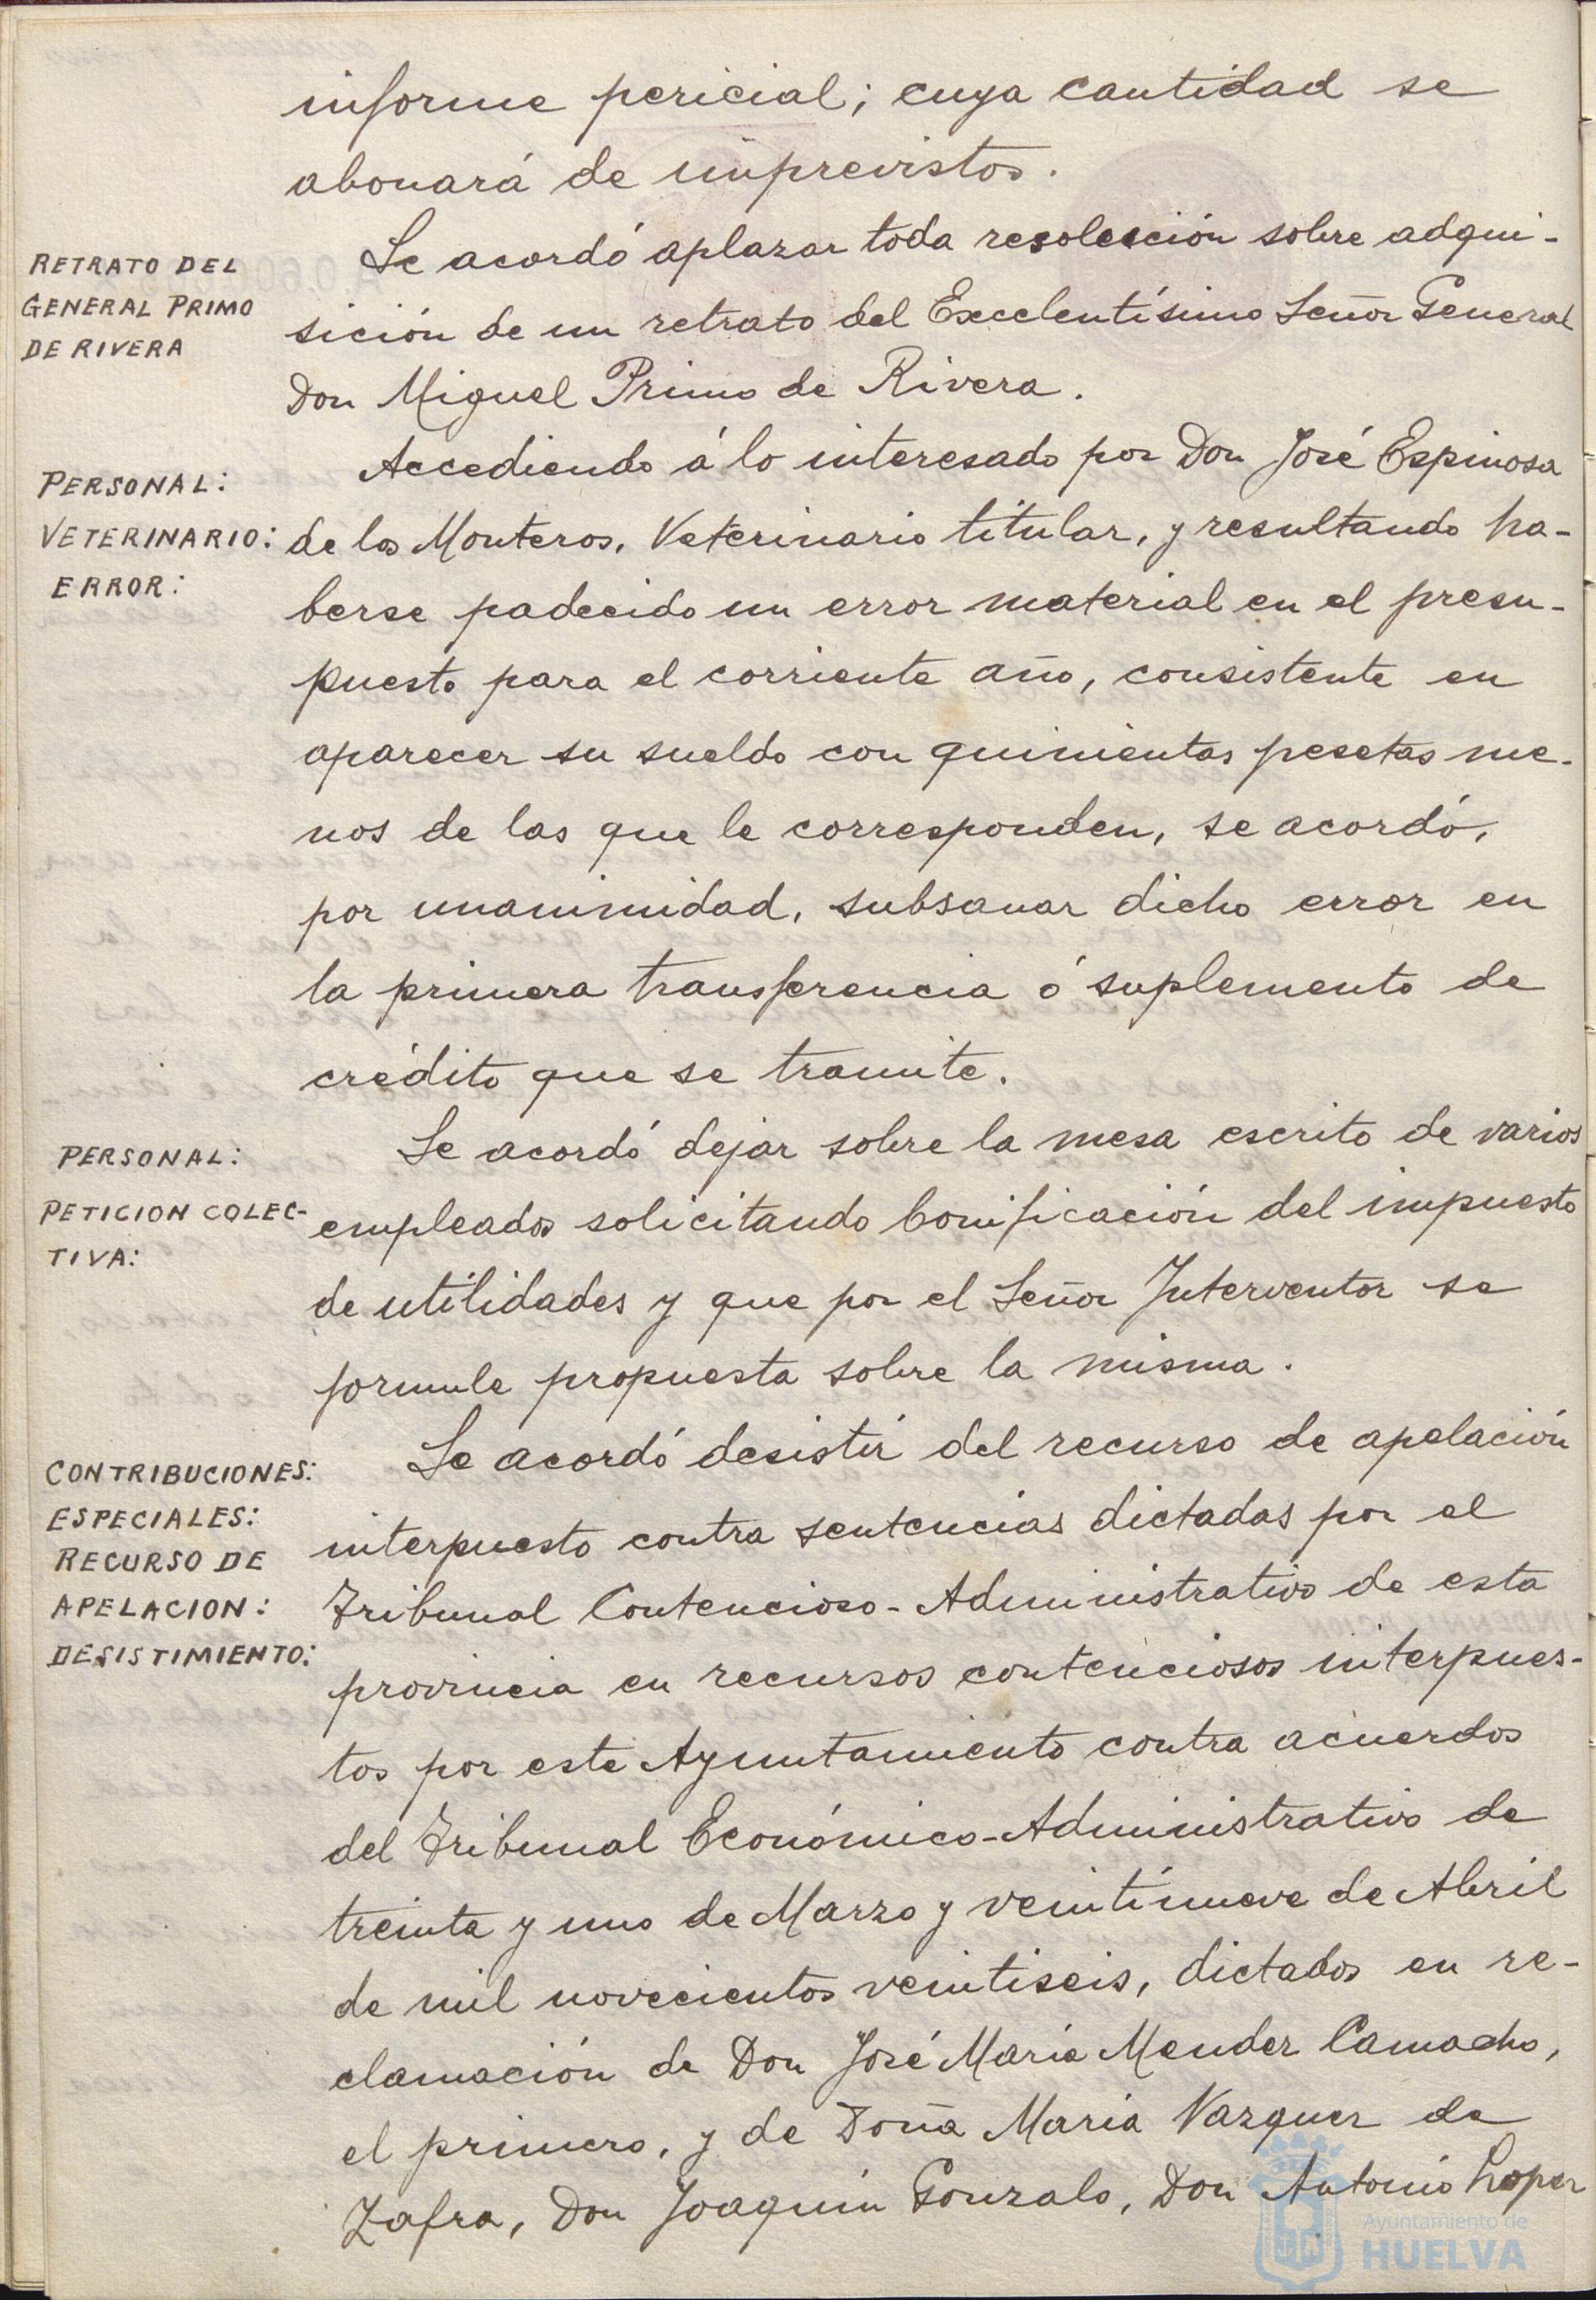 informe pericial; cuya cantidad se
abonará de imprevistos.
RETRATO DEL
GENERAL PRIMO
DE RIVERA
Se acordó aplazar toda resolución sobre adqui-
sición de un retrato del Excelentísimo Señor General
Don Miguel Primo de Rivera.
PERSONAL:
VETERINARIO:
ERROR:
Accediendo á lo interesado por Don José Espinosa
de los Monteros, Veterinario titular, y resultando ha-
berse padecido un error material en el presu-
puesto para el corriente año, consistente en
aparecer su sueldo con quinientas pesetas me-
nos de las que le corresponden, se acordó,
por unanimidad, subsanar dicho error en
la primera transferencia ó suplemento de
crédito que se tramite.
PERSONAL:
PETICION COLEC-
TIVA:
Se acordó dejar sobre la mesa escrito de varios
empleados solicitando bonificación del impuesto
de utilidades y que por el Señor Interventor se
formule propuesta sobre la misma.
CONTRIBUCIONES:
ESPECIALES:
RECURSO DE
APELACION:
DESISTIMIENTO:
Se acordó desistir del recurso de apelación
interpuesto contra sentencias dictadas por el
Tribunal Contencioso-Administrativo de esta
provincia en recursos contenciosos interpues-
tos por este Ayuntamiento contra acuerdos
del Tribunal Económico-Administrativo de
treinta y uno de Marzo y veintinueve de Abril
de mil novecientos veintiseis, dictados en re-
clamación de Don José María Mendez Camacho,
el primero, y de Doña Maria Vazquez de
Zafra, Don Joaquin Gonzalo, Don Antonio Lopez
Ayuntamiento de
HUELVA